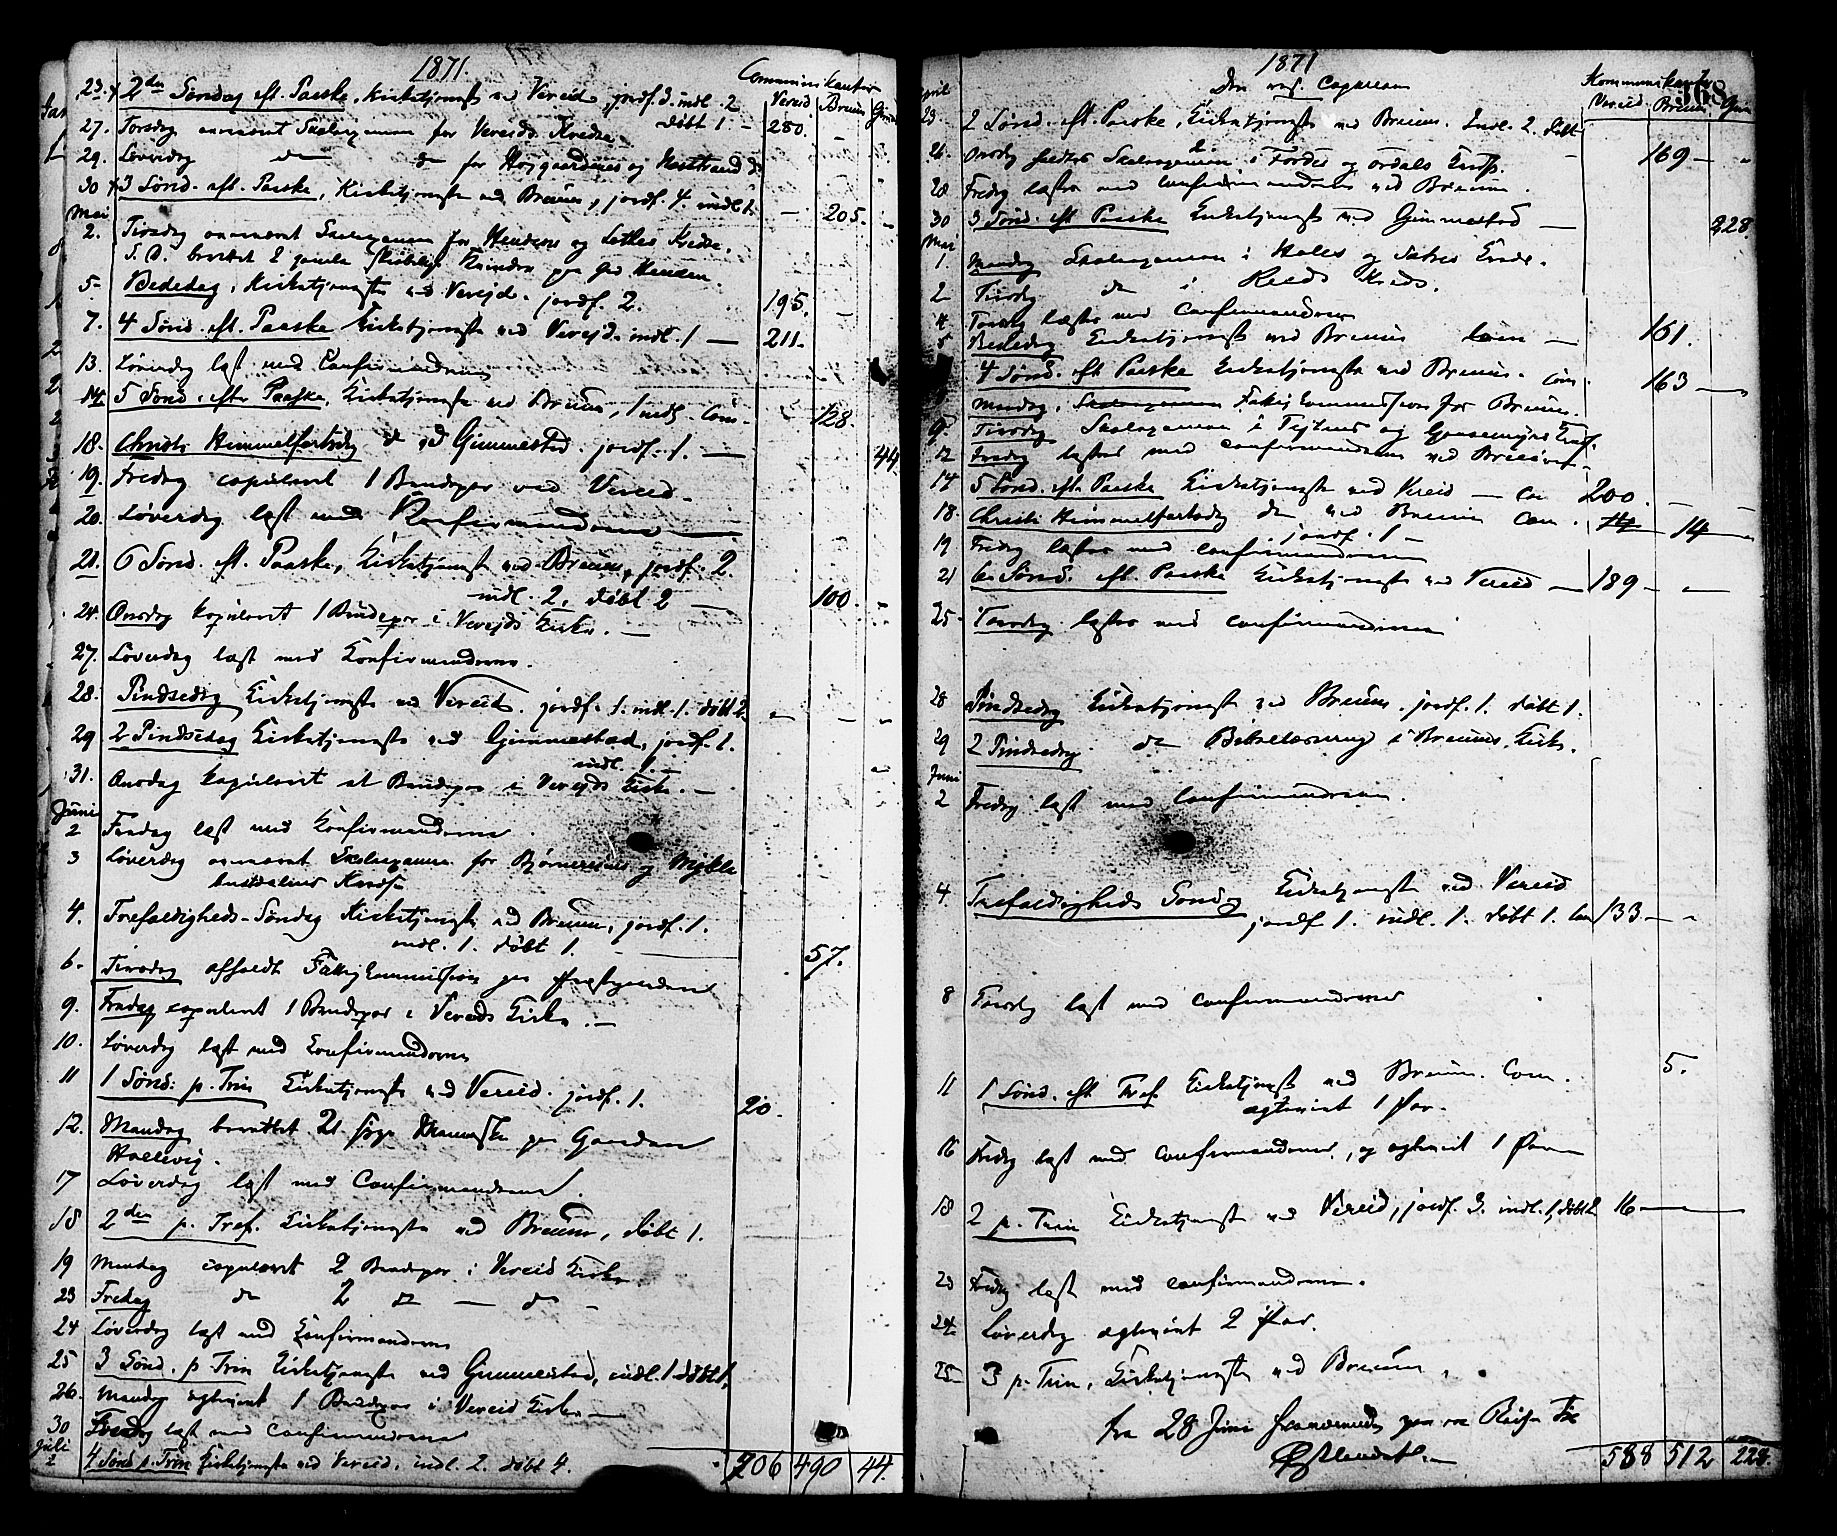 1871.
Communikanter
Vereid Breum
23. 2den Søndag eft. Paaske, Kirketjeneste ved Vereid, jordf. 3. indl. 2
døbt 1. — 280.
27. Torsdag Skoleexamen for Vereids Kredse
29. Løverdag do do for og
30 3 Sønd. eft. Paaske, Kirketjeneste ved Breum, jordf. 4 indl. — 205.
Mai
2. Tirsdag Skoleexamen for og Lothes Kredse.
S. D. 2 gamle Kvinder paa
5. Bededag, Kirketjeneste ved Vereid. jordf. 2. 195.
7. 4 Sønd. eft. Paaske Kirketjeneste ved Vereid. indl. 1 — 211.
13. Løverdag læst med Confirmanderne
14 5 Sønd. efter Paaske, Kirketjeneste ved Breum, 1 indl. Com. 128.
18. Christi Himmelfartsdag do ved Gimmestad. jordf. 1. — 44
19. Fredag copuleret 1 Brudepar ved Vereid.
20. Løverdag læst med Konfirmanderne
21. 6 Sønd. eft. Paaske, Kirketjeneste ved Breum, jordf. 2.
indl. 2, døbt 2 — 100.
24. Onsdag kopuleret 1 Brudepar i Vereids Kirke. —
27. Løverdag læst med Konfirmanderne.
28. Pindsedag Kirketjeneste ved Vereid. jordf. 1. indl. 1. døbt 2.
29 2 Pindsedag Kirketjeneste ved Gimmestad, jordf. 1.
indl. 1. —
31. Onsdag kopuleret et Brudepar i Vereids Kirke. —
Juni
2 Fredag læst med Konfirmanderne.
3 Løverdag Skoleexamen for og Mykle
Kreds
4. Trefoldigheds-Søndag Kirketjeneste ved Breum, jordf. 1.
indl. 1. døbt 1. 57.
6. Tirsdag afholdt Fattigkommission paa Præstegaarden
9. Fredag copuleret 1 Brudepar i Vereids Kirke. —
10. Løverdag læst med Konfirmanderne
11 1 Sønd: p. Trin Kirketjeneste ved Vereid. jordf. 1. 20.
12. Mandag berettet 21 syge Mennesker paa Gaarden
17 Løverdag læst med Confirmanderne.
18 2den p. Tref. Kirketjeneste ved Breum, døbt 1.
19 Mandag copuleret 2 Brudepar i Vereid Kirke.
23 Fredag do 2 do — do —
24 Løverdag læst med Konfirmanderne
25 3 Sønd. p. Trin Kirketjeneste ved Gimmestad, indl. 1 døbt 1.
26. Mandag ægteviet 1 Brudepar i Vereid Kirke —
30 Fredag læst med Confirmanderne
Juli
2 4 Sønd p. Trin Kirketjeneste ved Vereid, indl. 2. døbt 4.
706 490 44.
1871
Den res. Capellan
Kommunikanter
368
Vereid Breum Gim
April
23. 2 Sønd. eft. Paaske, Kirketjeneste ved Breum. Indl. 2. døbt 169 —
26. Onsdag holdtes Skoleexamen i Førdes og Ordals Kreds.
28 Fredag læstes med Confirmanderne ved Breum.
30 3 Sønd. eft Paaske Kirketjeneste ved Gimmestad — 228.
Mai
1 Mandag Skoleexamen i Holes og Sætres Kreds.
2 Tirsdag do i Reeds Kreds.
4 Torsdag læstes med Confirmanderne
5 Bededag Kirketjeneste ved Breum Com — 161.
4 Sønd. eft. Paaske Kirketjeneste ved Breum. Com. 163 —
Mandag, Skoleexamen Fattigkommission for Breum.
9. Tirsdag Skoleexamen i og Kreds.
12 Fredag læstes med Confirmanderne ved Breum
14 5 Sønd. eft. Paaske Kirketjeneste ved Vereid — Com 200. —
18 Christi Himmelfartsdag do ved Breum Com. 14 — 14 —
jordf. 1 —
19 Fredag læstes med Confirmanderne
21 6te Sønd. eft. Paaske Kirketjeneste ved Vereid — 189 — —
25 Torsdag læstes med Confirmanderne
28 Pindsedag Kirketjeneste ved Breum. jordf. 1. døbt 1.
29 2 Pindsedag do Bibellæsning i Breums Kirke.
Juni
2 Fredag læst med Confirmanderne.
4 Trefoldigheds Søndag Kirketjeneste ved Vereid
jordf 1. indl. 1. døbt 1. Com 133 —
8 Torsdag læst med Confirmanderne
11 1 Sønd. eft Tref. Kirketjeneste ved Breum. Com. 5.
ægteviet 1 Par.
16 Fredag læst med Confirmanderne, og ægteviet 1 Par
18 2 p. Trin Kirketjeneste ved Vereid, jordf. 3. indl. 1, døbt 2 16 —
23 Fredag læst med Confirmanderne.
24 Løverdag ægteviet 2 Par.
25 3 p. Trin, Kirketjeneste ved Breum.
fra 28 Juni fraværende paa en Reise til
588 512 228.